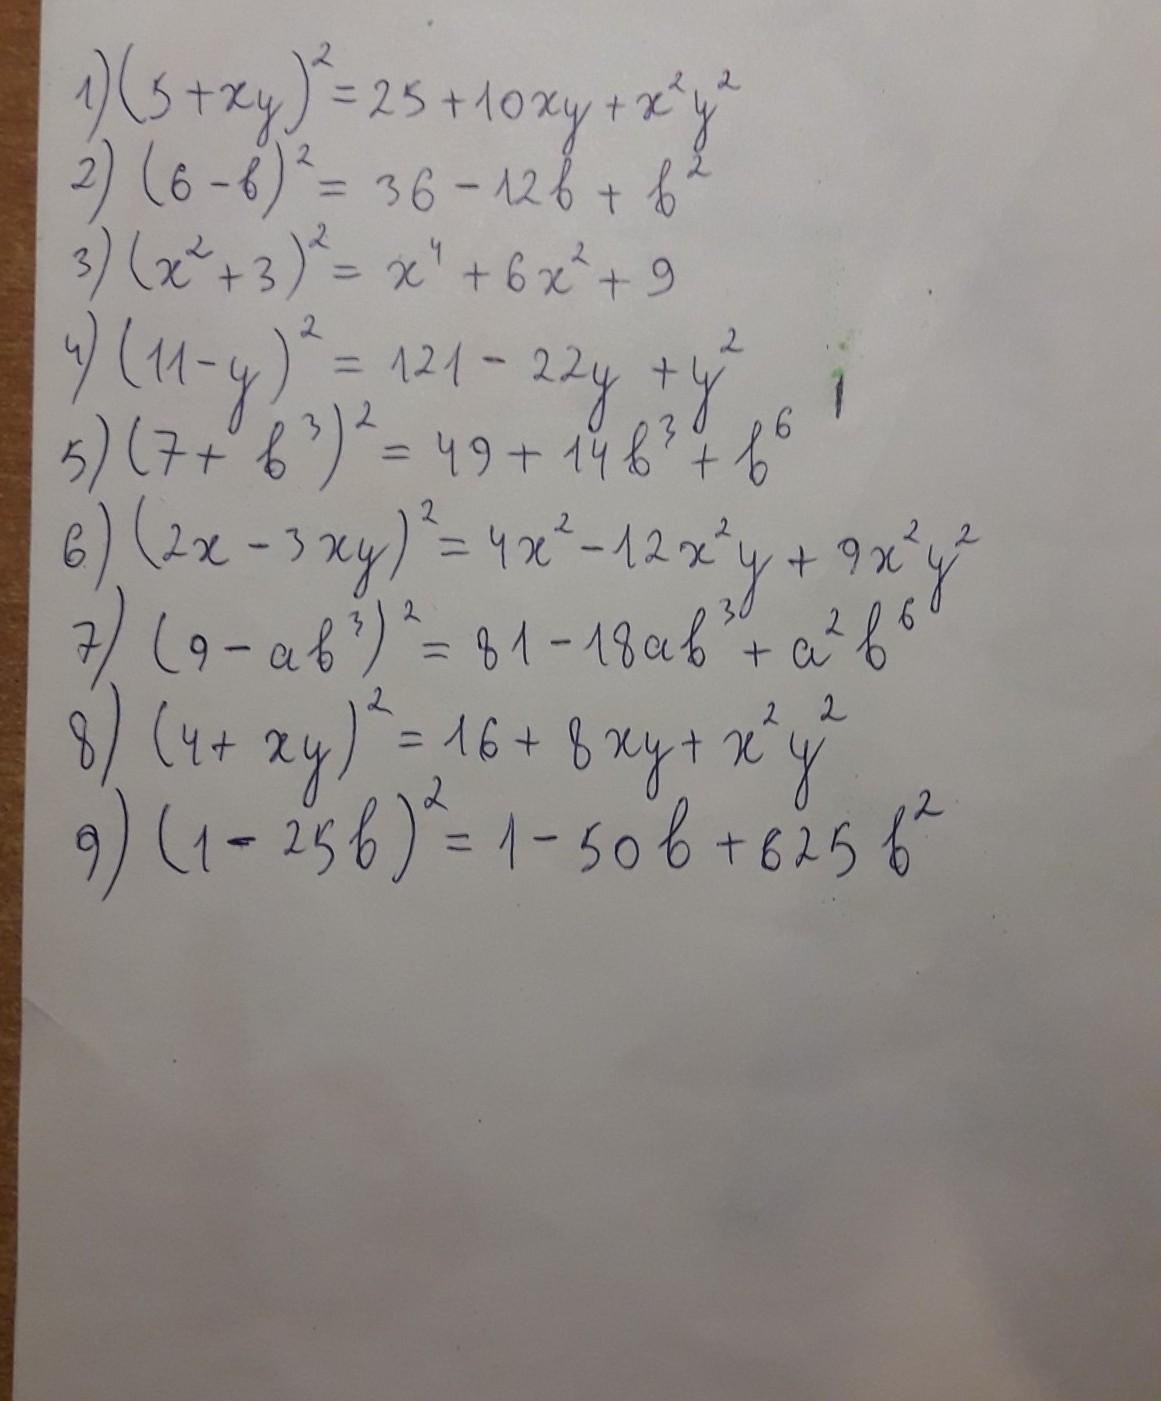 1) (5+xy)² = 25+10xy+x²y²
2) (6-b)² = 36-12b+b²
3) (x²+3)² = x⁴+6x²+9
4) (11-y)² = 121-22y+y²
5) (7+b³)² = 49+14b³+b⁶
6) (2x-3xy)² = 4x²-12x²y+9x²y²
7) (9-ab³)² = 81-18ab³+a²b⁶
8) (4+xy)² = 16+8xy+x²y²
9) (1-25b)² = 1-50b+625b²